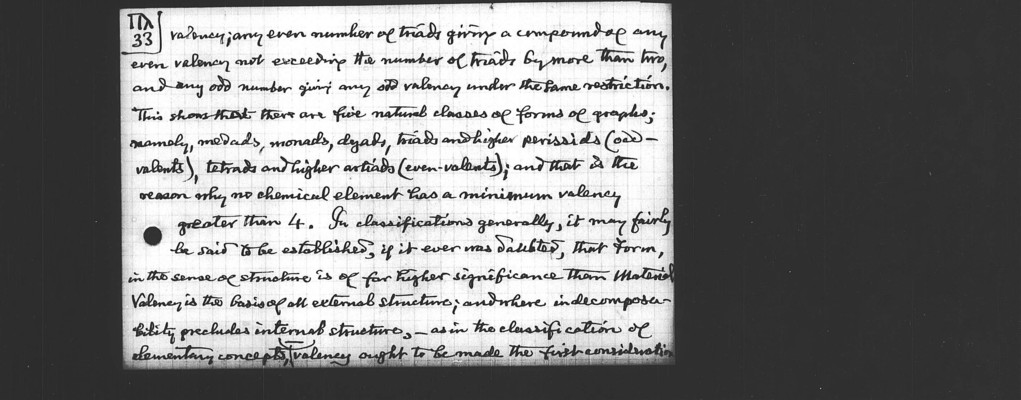 ΠΛ
33
valency; any even number of triads giving a compound of any
even valency not exceeding the number of triads by more than two,
and any odd number giving any odd valency under the same restriction.
This shows that there are five natural classes of forms of graphs;
namely, medads, monads, dyads, triads and higher perissids (odd-
valents), tetrads and higher artiads (even-valents); and that is the
reason why no chemical element has a minimum valency
greater than 4. In classifications generally, it may fairly
be said to be established, if it ever was doubted, that Form,
in the sense of structure is of far higher significance than Material
Valency is the basis of all external structure; and where indecomposa-
bility precludes internal structure, – as in the classification of
elementary concepts, valency ought to be made the first consideration